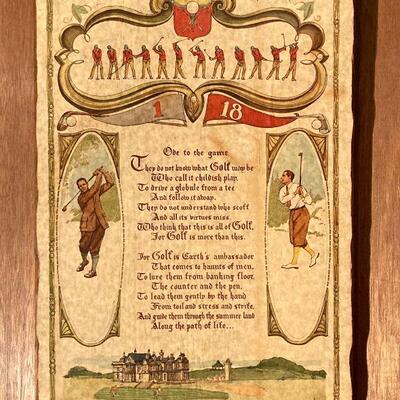 1
18
Ode to the game
They do not know what Golf may be
Who call it childish play,
To drive a globule from a tee
And follow it away.
They do not understand who scoff
And all its virtues miss,
Who think that this is all of Golf,
For Golf is more than this.
For Golf is Earth's ambassador
That comes to haunts of men,
To lure them from banking floor,
The counter and the pen,
To lead them gently by the hand
From toil and stress and strife,
And guide them through the summer land
Along the path of life...